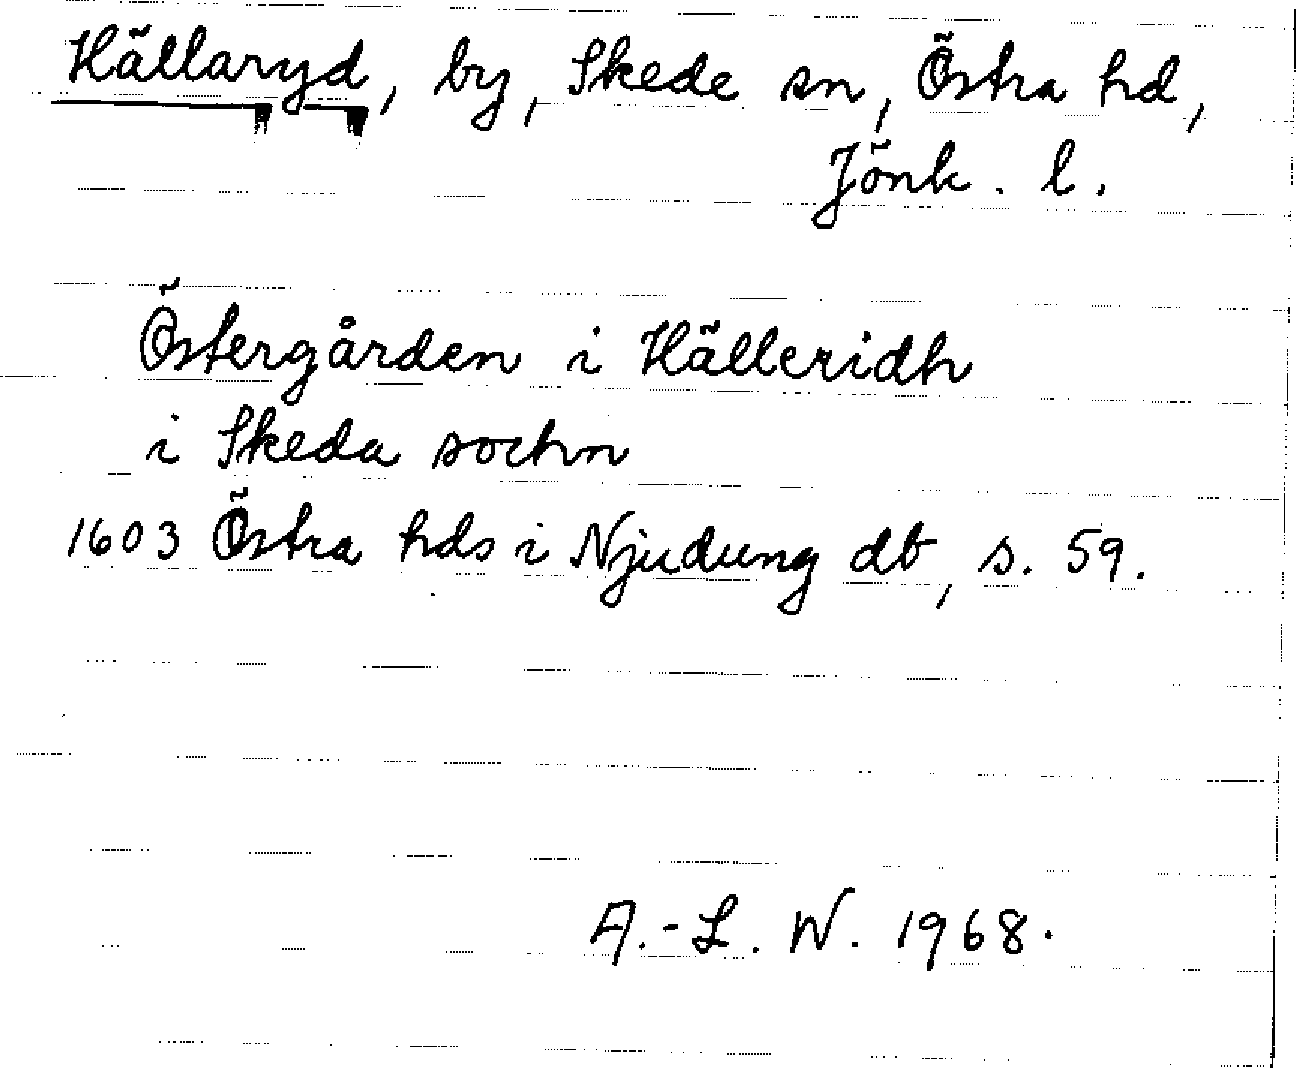 Hällaryd, by, Skede sn, Östra hd,
Jönk. l.
Östergården i Hälleridh
i Skeda sochn
1603 Östra hds i Njudung db, s. 59.
A.-L. W. 1968.